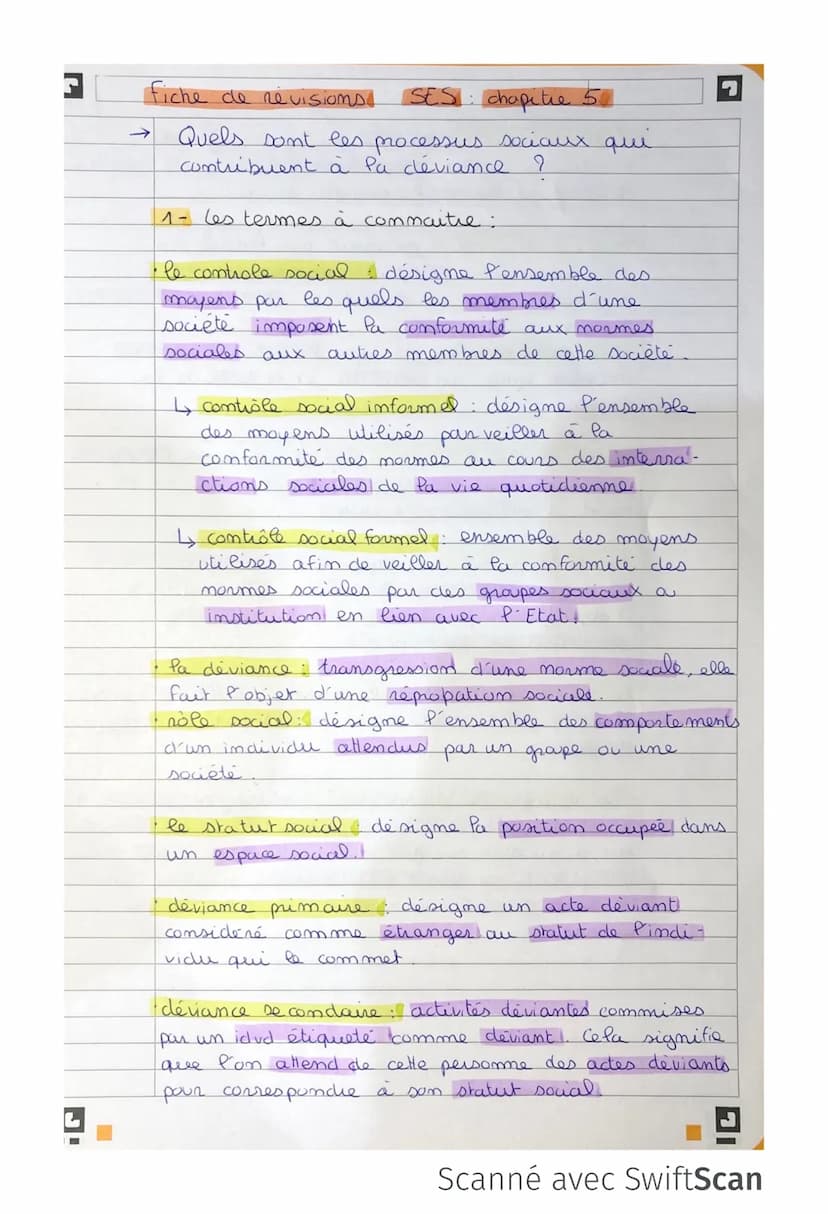 fiche de révisions SES : chapitre 5
→ Quels sont les processus sociaux qui
contribuent à la déviance ?
1- les termes à connaitre :
• le controle social : désigne l'ensemble des
moyens par les quels les membres d'une
société imposent la conformité aux normes
sociales aux autres membres de cette société.
↳ contrôle social informel : désigne l'ensemble
des moyens utilisés par veiller à la
conformité des normes au cours des interra-
ctions sociales de la vie quotidienne
↳ contrôle social formel : ensemble des moyens
utilisés afin de veiller à la conformité des
normes sociales par des groupes sociaux a
institution en lien avec l'Etat.
• la déviance : transgression d'une norme sociale, elle
fait l'objet d'une répropation sociale.
• rôle social : désigne l'ensemble des comportements
d'un individu attendus par un grape ou une
société.
• le statut social : désigne la position occupée dans
un espace social.
• déviance primaire : désigne un acte déviant
considéré comme étranger au statut de l'indi-
vidu qui le commet
• déviance secondaire : activités déviantes commises
par un idvd étiqueté comme déviant. Cela signifie
que l'on attend de cette personne des actes déviants
pour correspondre à son statut social.
Scanné avec SwiftScan